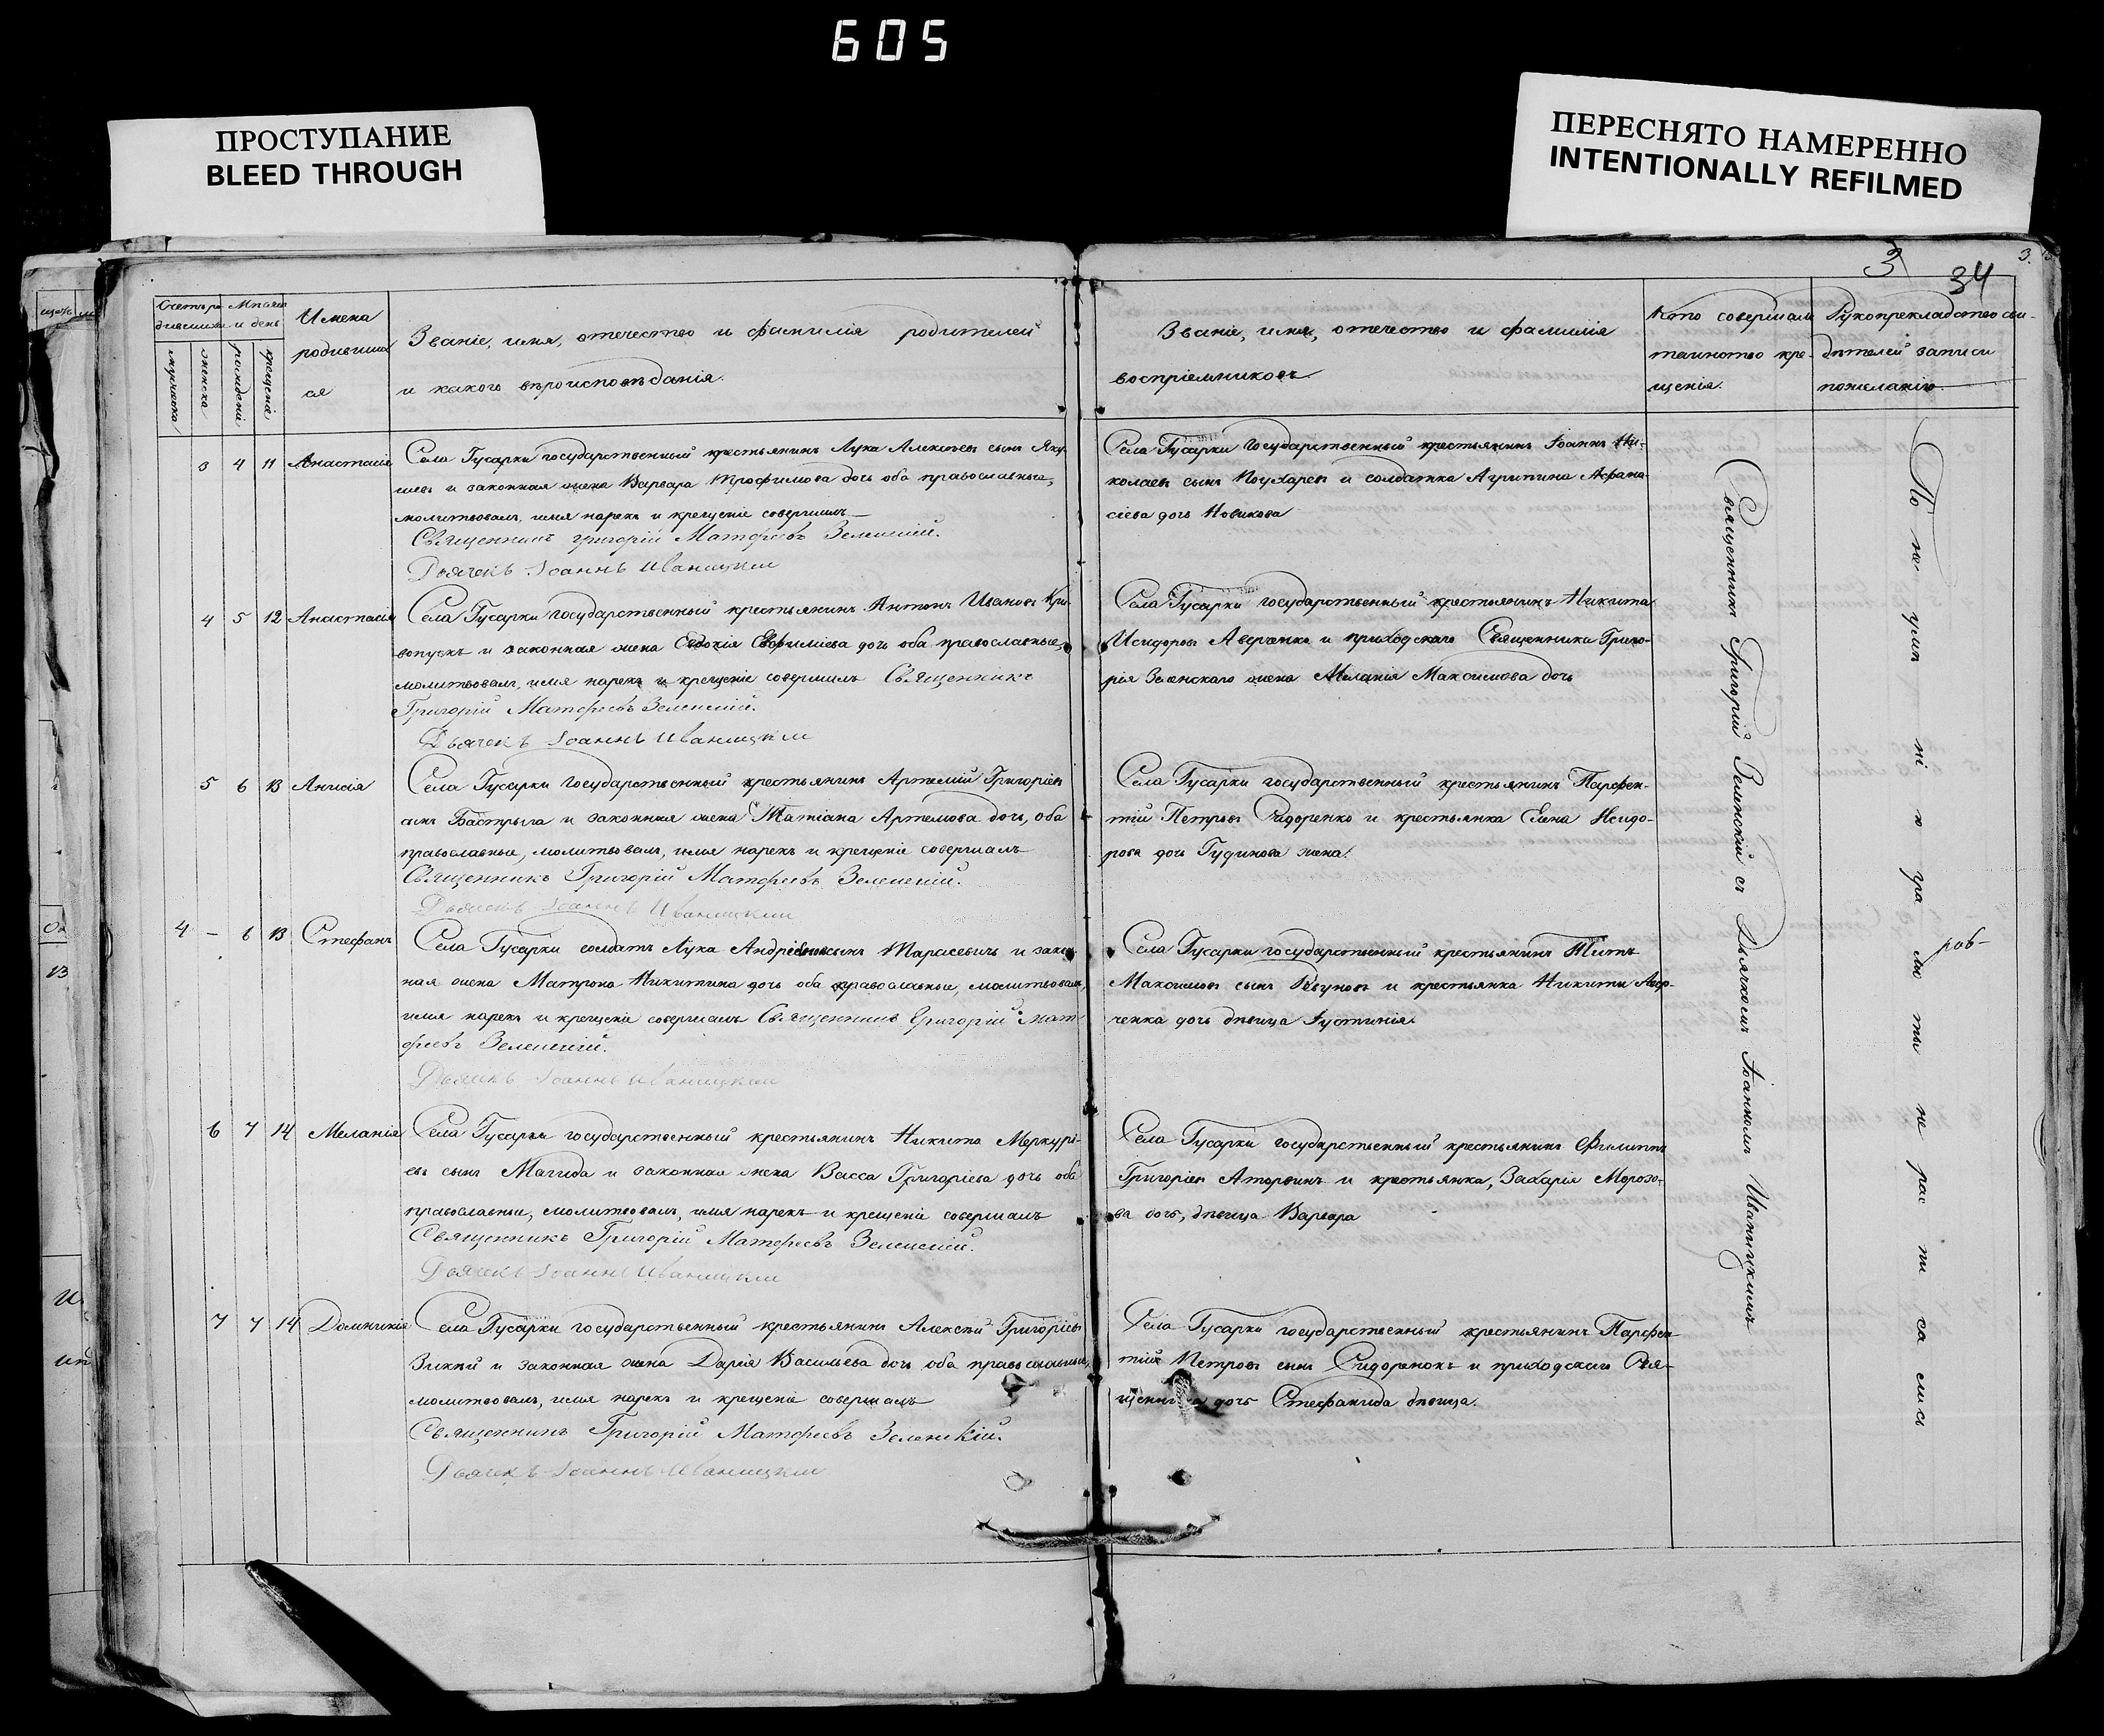 605
ПРОСТУПАНИЕ
BLEED THROUGH
ПЕРЕСНЯТО НАМЕРЕННО
INTENTIONALLY REFILMED
3
34
3.
Счетъ ро
дившихся
Мѣсяцъ
и день
мужеска
женска
рожденія
крещенія
Имена
родивших
ся
Званіе, имя, отечество и фамилія родителей
и какого вѣроисповѣданія.
Званіе, имя, отечество и фамилія
воспріемниковъ
Кто совершалъ
таинство кре-
щенія.
Рукоприкладство сви-
дѣтелей записи
пожеланію
3 4 11 Анастасія
Села Гусарки государственный крестьянинъ Лука Алексѣевъ сынъ Яку-
шевъ и законная жена Варвара Трофимова дочь оба православные,
молитвовалъ, имя нарекъ и крещеніе совершилъ
Священникъ Григорій Матфеевъ Зеленскій.
Дьячекъ Іоаннъ Иваницкій
Села Гусарки Государственный крестьянинъ Іоаннъ Ни-
колаевъ сынъ и солдатка Агрипина Афана-
сіева дочь Новикова
4 5 12 Анастасія
Села Гусарки государственный крестьянинъ Антонъ Ивановъ Кри-
вопускъ и законная жена Евдокія Евфиміева дочь оба православные,
молитвовалъ, имя нарекъ и крещеніе совершилъ Священникъ
Григорій Матфеевъ Зеленскій.
Дьячекъ Іоаннъ Иваницкій
Села Гусарки государственный крестьянинъ Никита
Исидоровъ Аверченко и приходскаго Священника Григо-
рія Зеленскаго жена Меланія Максимова дочь
5 6 13 Анисія
Села Гусарки Государственный крестьянинъ Артемій Григоріевъ
сынъ Бастрыга и законная жена Татіана Артемова дочь, оба
православные, молитвовалъ, имя нарекъ и крещеніе совершалъ
Священникъ Григорій Матфеевъ Зеленскій.
Дьячекъ Іоаннъ Иваницкій
Села Гусарки государственный крестьянинъ Парфен-
тій Петровъ Сидоренко и крестьянка Елена Исидо-
рова дочь Гудинова жена.
4 - 6 13 Стефанъ
Села Гусарки солдатъ Лука Андріевъ сынъ Тарасевичъ и закон-
ная жена Матрона Никитина дочь оба православные, молитвовалъ,
имя нарекъ и крещеніе совершалъ Священникъ Григорій Мат-
феевъ Зеленскій.
Дьячекъ Іоаннъ Иваницкій
Села Гусарки государственный крестьянинъ Титъ
Максимовъ сынъ и крестьянка Никиты Авер-
ченка дочь дѣвица Іустинія.
6 7 14 Меланія
Села Гусарки государственный крестьянинъ Никита Меркурі-
евъ сынъ Магида и законная жена Васса Григоріева дочь оба
православные, молитвовалъ, имя нарекъ и крещеніе совершалъ
Священникъ Григорій Матфеевъ Зеленскій.
Дьячекъ Іоаннъ Иваницкій
Села Гусарки государственный крестьянинъ Филиппъ
Григоріевъ и крестьянка, Захарія Морозо-
ва дочь, дѣвица Варвара
7 7 14 Домникія
Села Гусарки государственный крестьянинъ Алексѣй Григоріевъ
и законная жена Дарія Васильева дочь оба православные,
молитвовалъ, имя нарекъ и крещеніе совершалъ
Священникъ Григорій Матфеевъ Зеленскій.
Дьячекъ Іоаннъ Иваницкій
Села Гусарки государственный крестьянинъ Парфен-
тій Петровъ сынъ Сидоренокъ и приходскаго Свя-
щенника дочь Стефанида дѣвица.
Священникъ Григорій Зеленскій съ Дьячкомъ Іоанномъ Иваницкимъ
По не умѣ ні ю гра мо ты не рас пи са лись